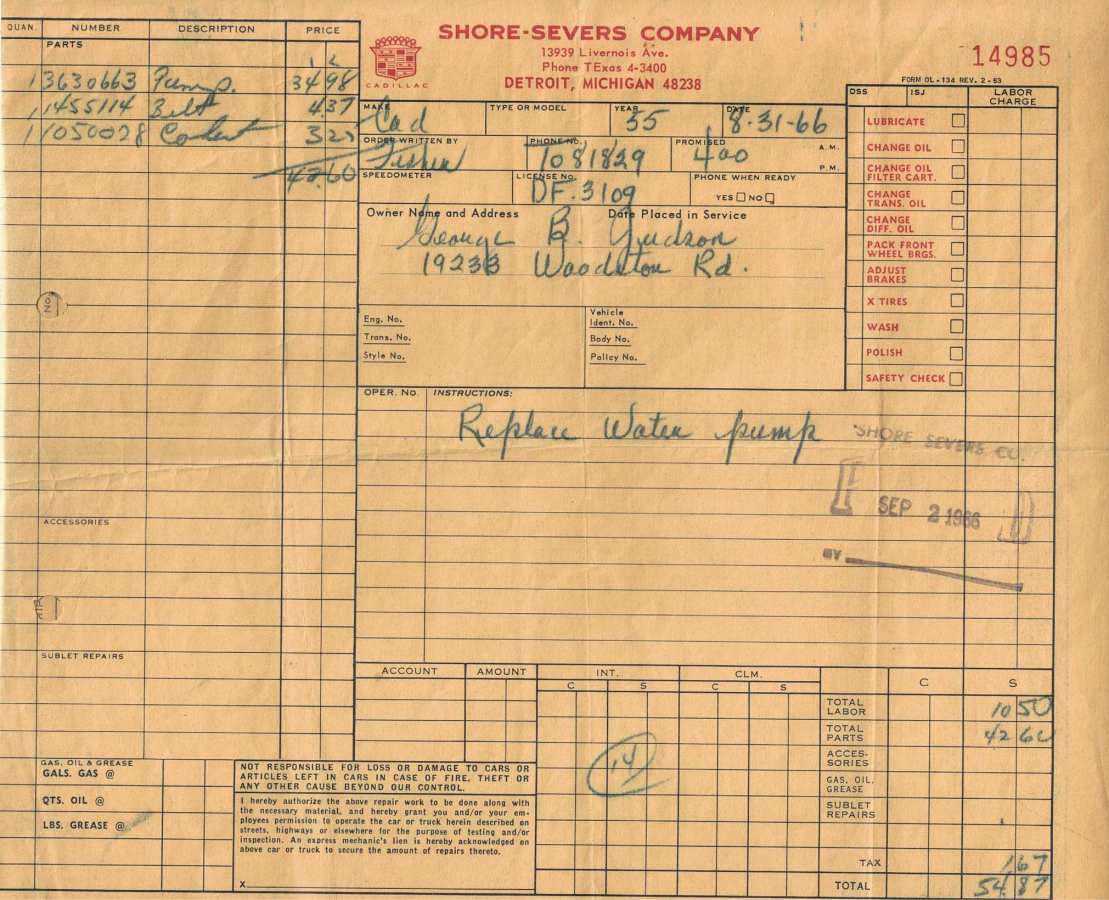 SHORE-SEVERS COMPANY
13939 Livernois Ave.
Phone TExas 4-3400
DETROIT, MICHIGAN 48238
CADILLAC
14985
FORM OL-134 REV. 2-63
QUAN. NUMBER DESCRIPTION PRICE
PARTS
1 2
1 3630663 Pump. 34 98
1 1455114 Belt 4.37
1 1050028 Coolant 3 25
42.60
MAKE Cad TYPE OR MODEL YEAR 55 DATE 8-31-66
ORDER WRITTEN BY Fisher PHONE NO. 1081829 PROMISED 400 A.M. P.M.
SPEEDOMETER LICENSE No. DF.3109 PHONE WHEN READY
YES NO
Owner Name and Address Date Placed in Service
George B. Judson
19233 Woodston Rd.
Eng. No. Vehicle Ident. No.
Trans. No. Body No.
Style No. Policy No.
DSS ISJ LABOR CHARGE
LUBRICATE
CHANGE OIL
CHANGE OIL FILTER CART.
CHANGE TRANS. OIL
CHANGE DIFF. OIL
PACK FRONT WHEEL BRGS.
ADJUST BRAKES
X TIRES
WASH
POLISH
SAFETY CHECK
OPER. NO. INSTRUCTIONS:
Replace Water pump
SHORE SEVERS CO.
SEP 2 1966
BY
ACCESSORIES
SUBLET REPAIRS
ACCOUNT AMOUNT INT. CLM.
C S C S C S
TOTAL LABOR 10 50
TOTAL PARTS 42 60
ACCES-SORIES
GAS, OIL, GREASE
SUBLET REPAIRS
TAX 1 67
TOTAL 54.87
14
GAS, OIL & GREASE
GALS. GAS @
QTS. OIL @
LBS. GREASE @
NOT RESPONSIBLE FOR LOSS OR DAMAGE TO CARS OR
ARTICLES LEFT IN CARS IN CASE OF FIRE, THEFT OR
ANY OTHER CAUSE BEYOND OUR CONTROL.
I hereby authorize the above repair work to be done along with
the necessary material, and hereby grant you and/or your em-
ployees permission to operate the car or truck herein described on
streets, highways or elsewhere for the purpose of testing and/or
inspection. An express mechanic's lien is hereby acknowledged on
above car or truck to secure the amount of repairs thereto.
X